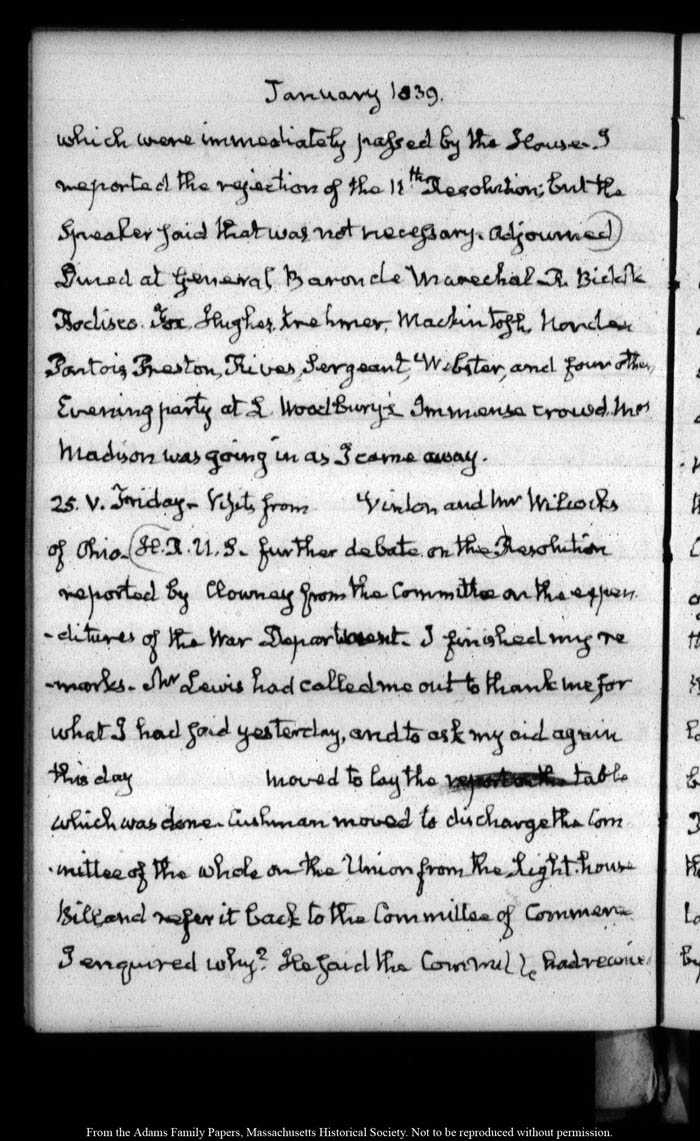 January 1839.
which were immediately passed by the House. I
reported the rejection of the 11th Resolution; but the
Speaker said that was not necessary. adjourned
Dined at General, Baron de Marechal. R.
Bodisco. Fox, Hughes, Krehmer, Mackintosh,
Pontois, Preston, Rives, Sergeant, Webster, and four others
Evening party at L. Woodbury's Immense crowd. Mrs
Madison was going in as I came away.
25. V. Friday. Visits from Vinton and Mr Wilcocks
of Ohio. H. R. U. S. further debate on the Resolution
reported by Clowney from the Committee on the expen
-ditures of the War Department. I finished my re
-marks. Mr Lewis had called me out to thank me for
what I had said yesterday, and to ask my aid again
this day moved to lay the report on the table
which was done. Cushman moved to discharge the Com
-mittee of the whole on the Union from the Light-house
Bill and refer it back to the Committee of Commerce
I enquired why? He said the Committee had receive
From the Adams Family Papers, Massachusetts Historical Society. Not to be reproduced without permission.